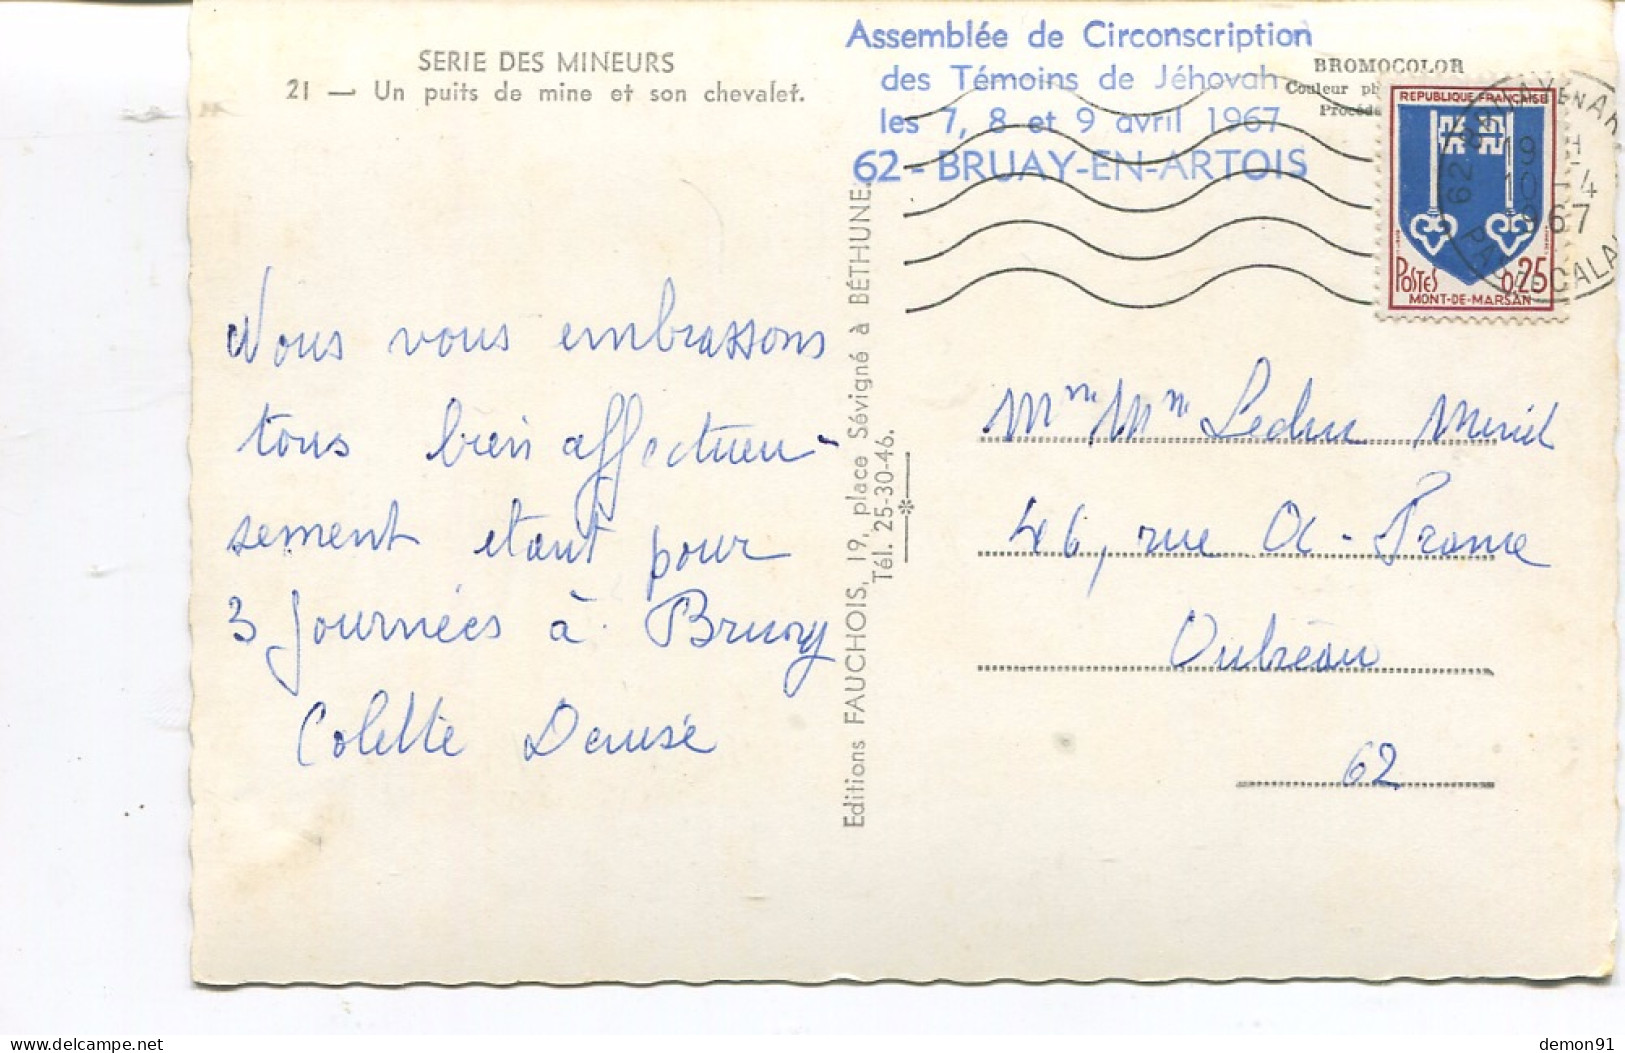 SERIE DES MINEURS
21 — Un puits de mine et son chevalet.
Assemblée de Circonscription
des Témoins de Jéhovah
les 7, 8 et 9 avril 1967
62 - BRUAY-EN-ARTOIS
BROMOCOLOR
Couleur
Procédé
REPUBLIQUE FRANÇAISE
POSTES 0,25
MONT-DE-MARSAN
19 H
10 - 4
1967
Nous vous embrassons
tous bien affectueu-
sement etant pour
3 journées à Bruay
Colette Denise
Editions FAUCHOIS, 19, place Sévigné à BÉTHUNE.
Tél. 25-30-46.
Mr Mme Leduc
46, rue A - France
62
Visitez demon91.delcampe.net
demon91